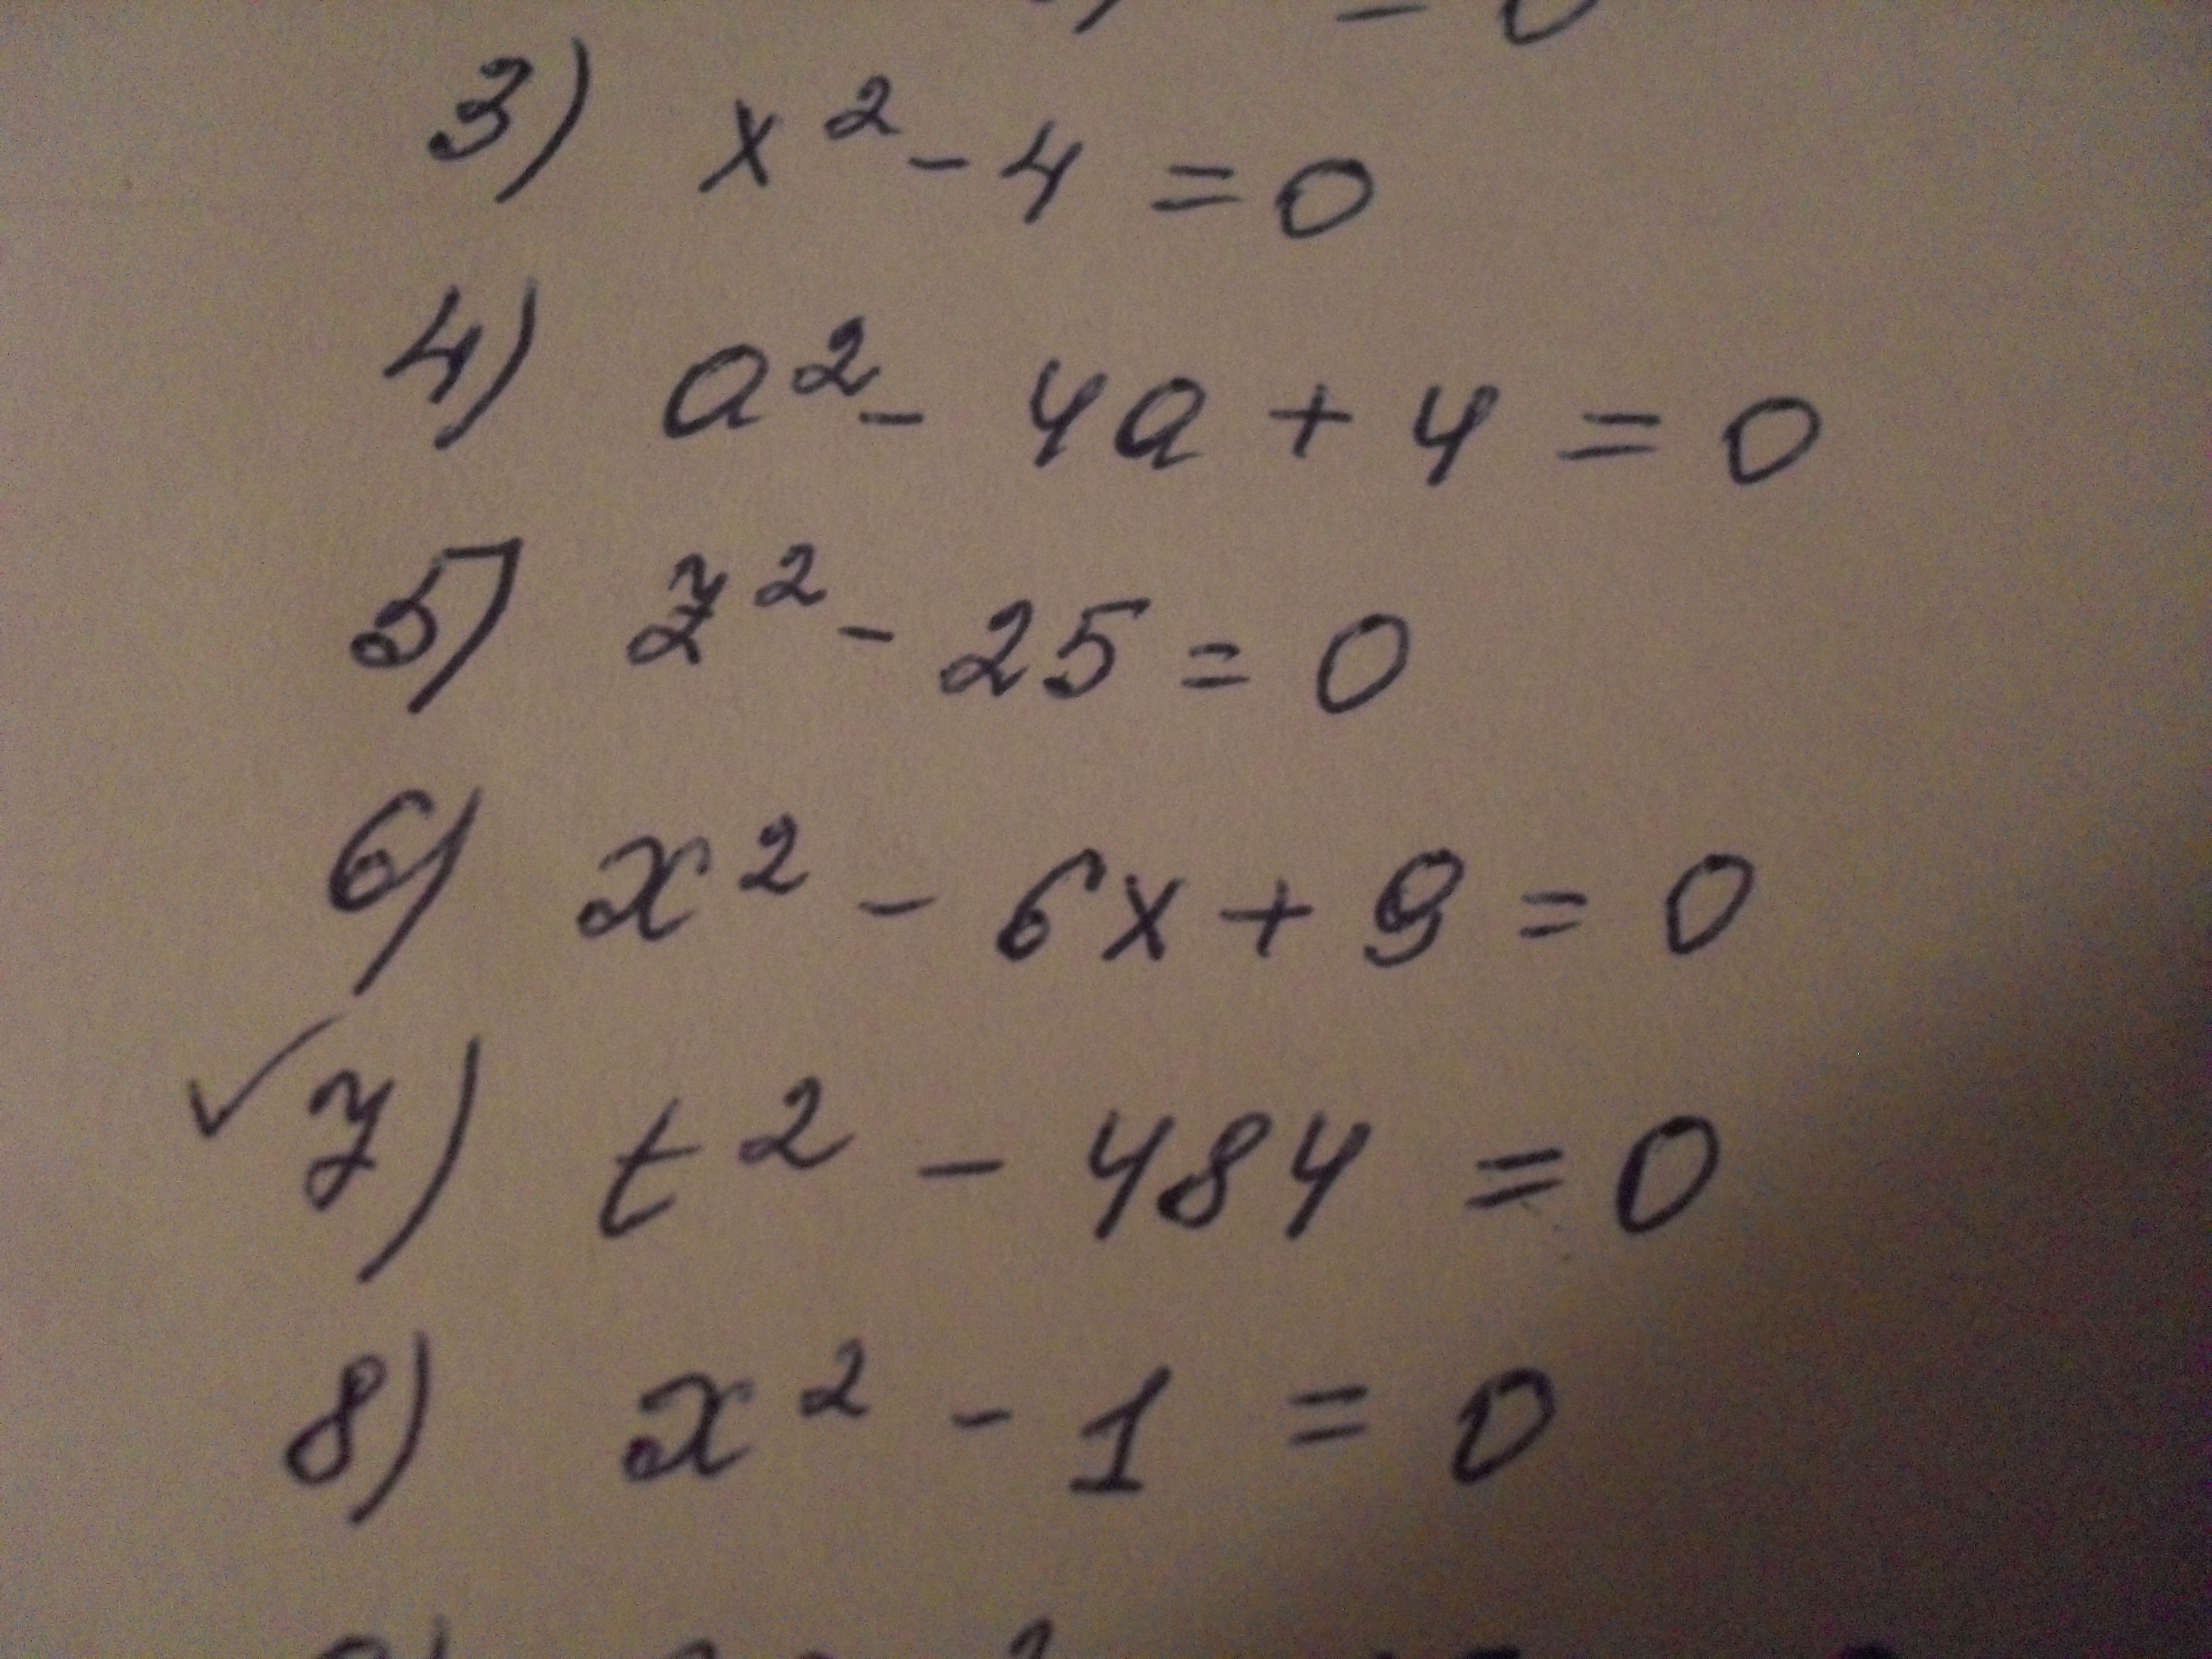 = 0
3) x² - 4 = 0
4) a² - 4a + 4 = 0
5) z² - 25 = 0
6) x² - 6x + 9 = 0
✓ 7) t² - 484 = 0
8) x² - 1 = 0